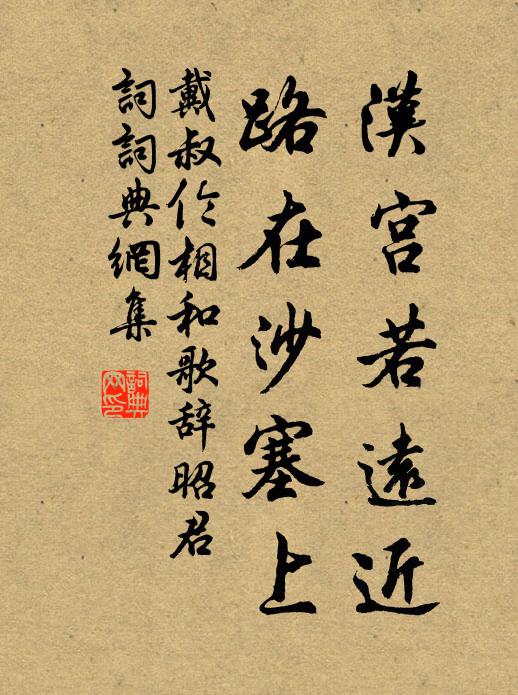 漢宮若遠近
路在沙塞上
戴叔伦相和歌辞昭君
詞詞典網集
詞典
网印